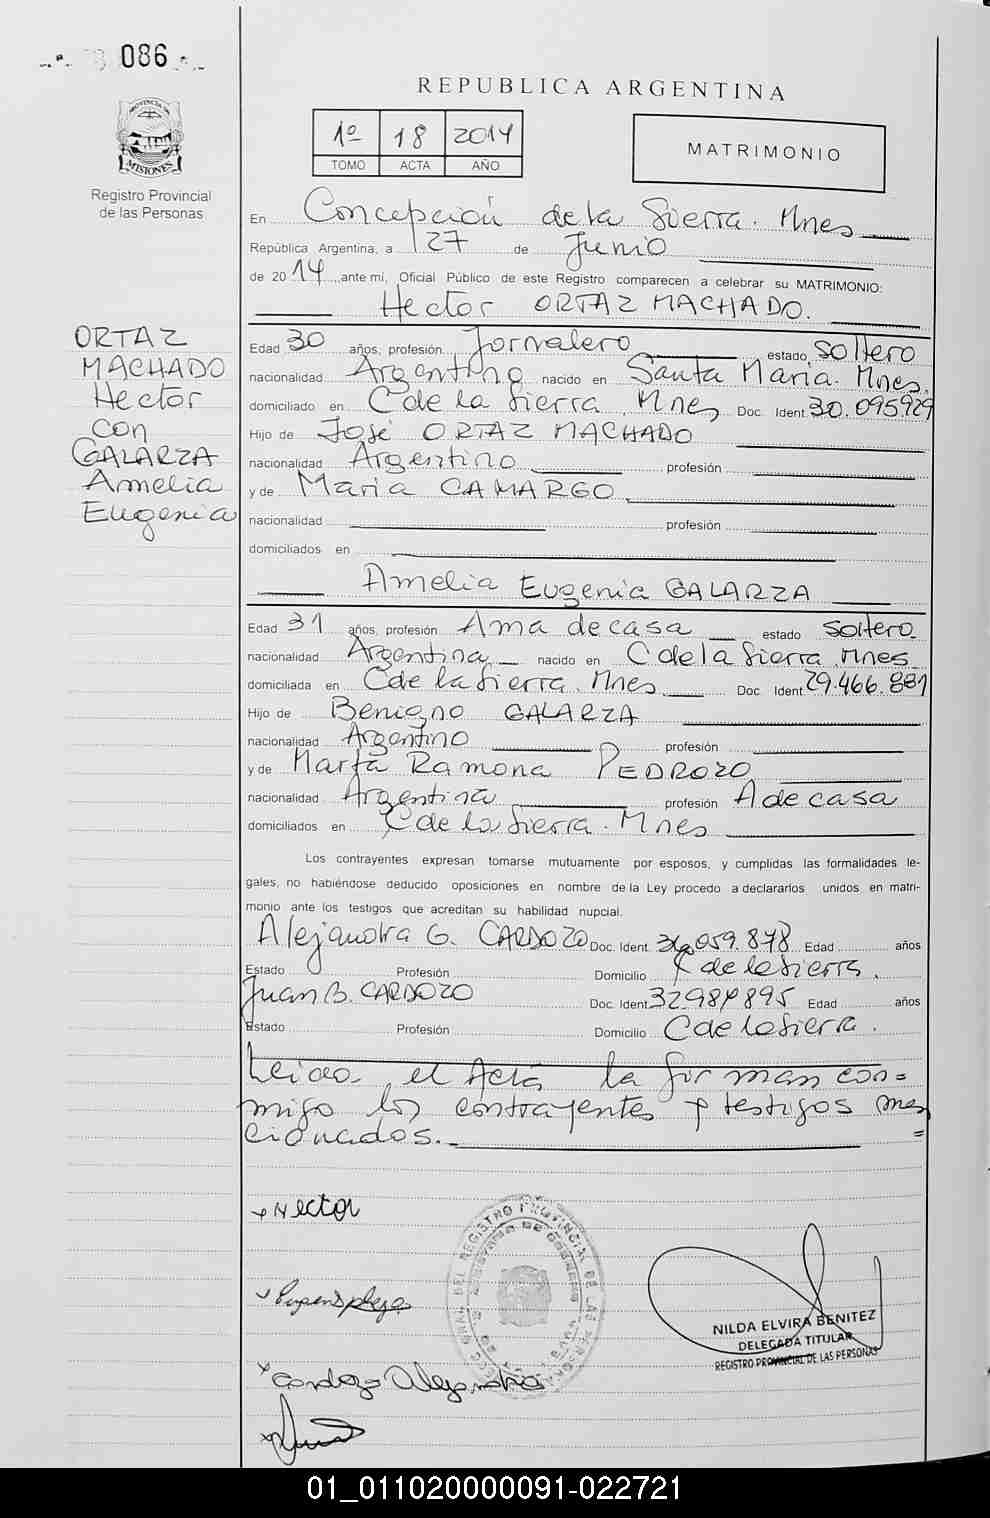 086
REPUBLICA ARGENTINA
1º 18 2014
TOMO ACTA AÑO
MATRIMONIO
PROVINCIA DE
MISIONES
Registro Provincial
de las Personas
En Concepción de la Sierra. Mnes
República Argentina, a 27 de Junio
de 2014, ante mí, Oficial Público de este Registro comparecen a celebrar su MATRIMONIO:
Hector ORTAZ MACHADO.
ORTAZ
MACHADO
Hector
con
GALARZA
Amelia
Eugenia
Edad 30 años, profesión Jornalero estado soltero
nacionalidad Argentino nacido en Santa Maria. Mnes.
domiciliado en C de la Sierra. Mnes Doc. Ident. 30.095.929
Hijo de José ORTAZ MACHADO
nacionalidad Argentino profesión
y de Maria CAMARGO
nacionalidad profesión
domiciliados en
Amelia Eugenia GALARZA
Edad 31 años, profesión Ama de casa estado soltero.
nacionalidad Argentina nacido en C de la Sierra. Mnes
domiciliada en C de la Sierra. Mnes Doc. Ident. 29.466.881
Hijo de Benigno GALARZA
nacionalidad Argentino profesión
y de Marta Ramona PEDROZO
nacionalidad Argentina profesión A de casa
domiciliados en C de la Sierra. Mnes
Los contrayentes expresan tomarse mutuamente por esposos, y cumplidas las formalidades le-
gales, no habiéndose deducido oposiciones en nombre de la Ley procedo a declararlos unidos en matri-
monio ante los testigos que acreditan su habilidad nupcial.
Alejandra G. CARDOZO Doc. Ident. 36.059.878 Edad años
Estado Profesión Domicilio C de la Sierra.
Juan B. CARDOZO Doc. Ident. 32984895 Edad años
Estado Profesión Domicilio C de la Sierra.
Leida el Acta la firman con=
migo los contrayentes y testigos men
=
cionados.
Hector
Cardozo Alejandra
NILDA ELVIRA BENITEZ
DELEGADA TITULAR
REGISTRO PROVINCIAL DE LAS PERSONAS
01_011020000091-022721